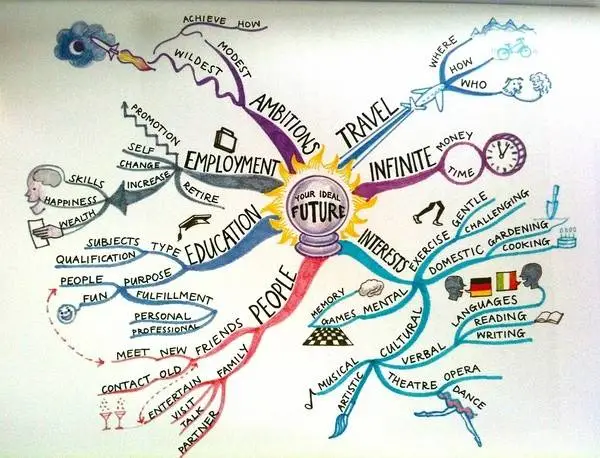 YOUR IDEAL
FUTURE
AMBITIONS
ACHIEVE HOW
MODEST
WILDEST
TRAVEL
WHERE
HOW
WHO
INFINITE
MONEY
TIME
INTERESTS
EXERCISE
GENTLE
CHALLENGING
DOMESTIC
GARDENING
COOKING
MENTAL
MEMORY
GAMES
CULTURAL
VERBAL
LANGUAGES
READING
WRITING
THEATRE
OPERA
DANCE
ARTISTIC
MUSICAL
PEOPLE
FRIENDS
MEET NEW
CONTACT OLD
FAMILY
ENTERTAIN
VISIT
TALK
PARTNER
EDUCATION
TYPE
SUBJECTS
QUALIFICATION
PURPOSE
PEOPLE
FUN
FULFILLMENT
PERSONAL
PROFESSIONAL
EMPLOYMENT
PROMOTION
SELF
CHANGE
INCREASE
SKILLS
HAPPINESS
WEALTH
RETIRE